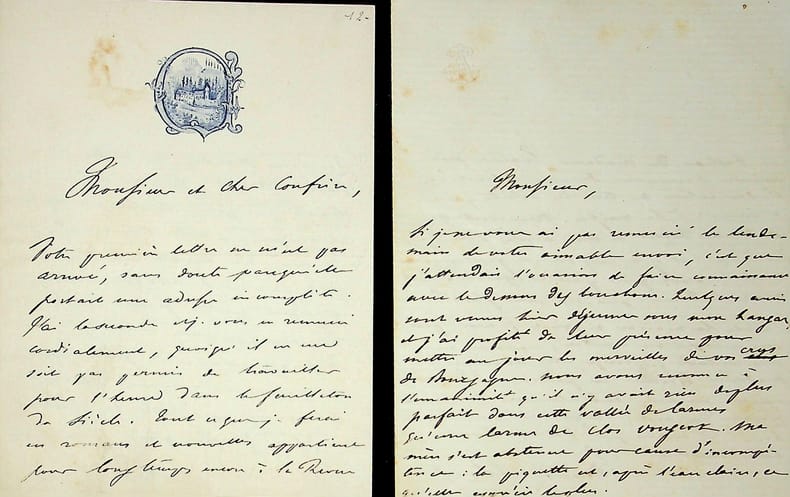 12-
Monsieur et cher Confrère,
Votre première lettre ne m'est pas
arrivé, sans doute parce qu'elle
portait une adresse incomplète.
J'ai la seconde et je vous en remercie
cordialement, quoiqu'il ne me
soit pas permis de travailler
pour l'heure dans le feuilleton
du Siècle. Tout ce que je ferai
en romans et nouvelles appartient
pour longtemps encore à la Revue
Monsieur,
Si je ne vous ai pas remercié le lende-
main de votre aimable envoi, c'est que
j'attendais l'occasion de faire connaissance
avec le dessous des bouchons. Quelques amis
sont venus hier déjeuner sous mon hangar,
et j'ai profité de leur présence pour
mettre au jour les merveilles de vos crus
de Bourgogne. Nous avons reconnu à
l'unanimité qu'il n'y avait rien de plus
parfait dans cette vallée de larmes
qu'une larme de clos vougeot. Ma
mère s'est abstenue pour cause d'incompé-
tence : la piquette est, après l'eau claire, ce
qu'elle apprécie le plus.